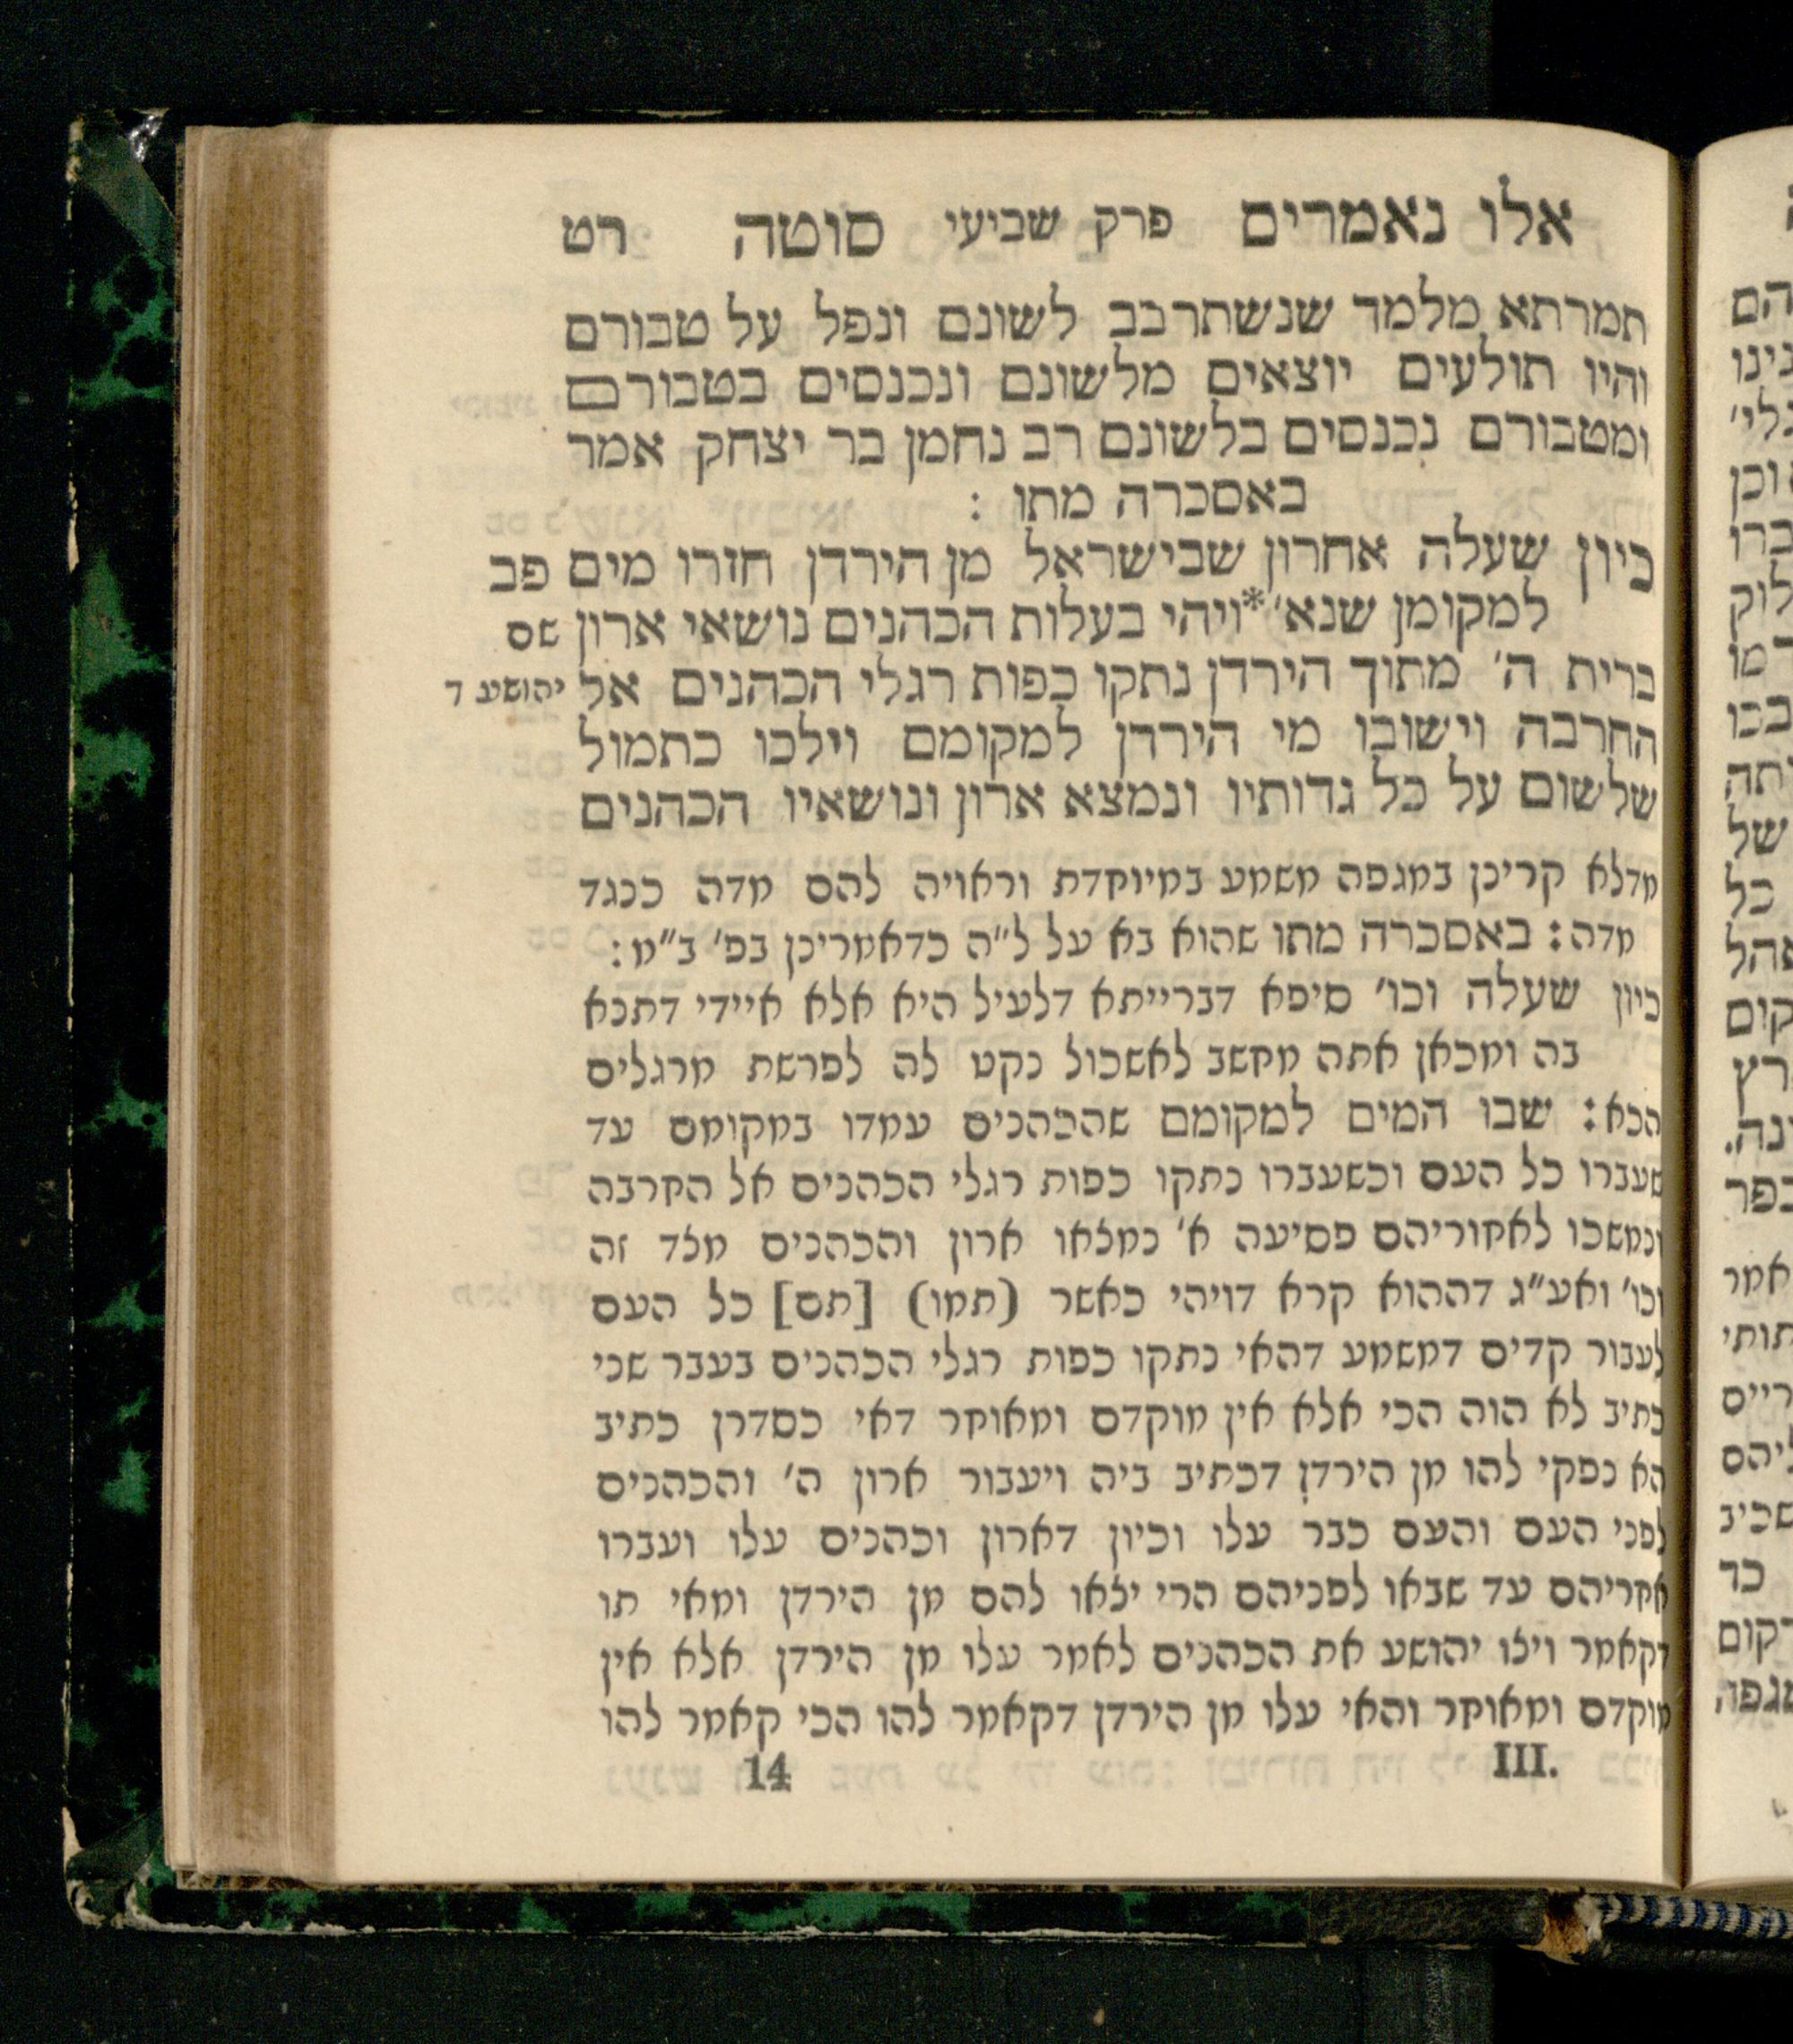 אלו נאמרים פרק שביעי סוטה רט
תמרתא מלמד שנשתרבב לשונם ונפל על טבורם
והיו תולעים יוצאים מלשונם ונכנסים בטבורם
ומטבורם נכנסים בלשונם רב נחמן בר יצחק אמר
באסכרה מתו :
כיון שעלה אחרון שבישראל מן הירדן חזרו מים פב
למקומן שנא׳ *ויהי בעלות הכהנים נושאי ארון שם
ברית ה׳ מתוך הירדן נתקו כפות רגלי הכהנים אל יהושע ד
החרבה וישובו מי הירדן למקומם וילכו כתמול
שלשום על כל גדותיו ונמצא ארון ונושאיו הכהנים
מדלא קרינן במגפה משמע במיוחדת וראויה להם מדה כנגד
מדה: באסכרה מתו שהוא בא על ל״ה כדאמרינן בפ׳ ב״מ:
כיון שעלה וכו׳ סיפא דברייתא דלעיל היא אלא איידי דתנא
בה ומכאן אתה מחשב לאשכול נקט לה לפרשת מרגלים
הכא: שבו המים למקומם שהכהנים עמדו במקומם עד
שעברו כל העם וכשעברו נתקו כפות רגלי הכהנים אל החרבה
ונמשכו לאחוריהם פסיעה א׳ נמצאו ארון והכהנים מצד זה
וכו׳ ואע״ג דההוא קרא דויהי כאשר (תמו) [תם] כל העם
לעבור קדים דמשמע דהאי נתקו כפות רגלי הכהנים בעבר שני
כתיב לא הוה הכי אלא אין מוקדם ומאוחר דאי כסדרן כתיב
הא נפקי להו מן הירדן דכתיב ביה ויעבור ארון ה׳ והכהנים
לפני העם והעם כבר עלו וכיון דארון וכהנים עלו ועברו
אחריהם עד שבאו לפניהם הרי יצאו להם מן הירדן ומאי תו
דקאמר ויצו יהושע את הכהנים לאמר עלו מן הירדן אלא אין
מוקדם ומאוחר והאי עלו מן הירדן דקאמר להו הכי קאמר להו
III. 14